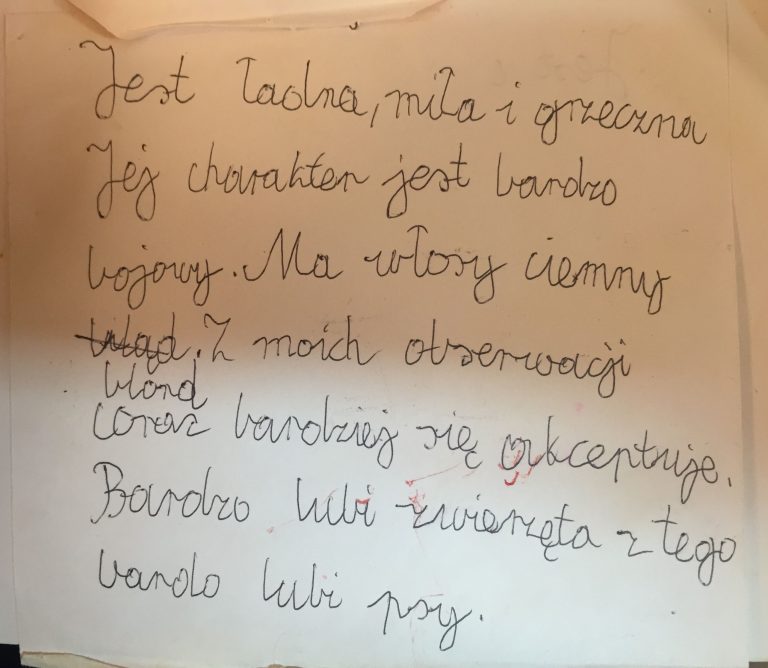 Jest ładna, miła i grzeczna
Jej charakter jest bardzo
bojowy. Ma włosy ciemny
blond. Z moich obserwacji
coraz bardziej się akceptuje.
Bardzo lubi zwierzęta z tego
bardo lubi psy.